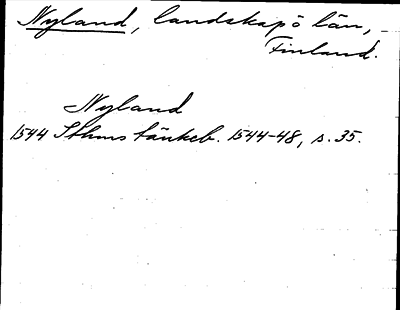 Nyland, landskap o län,
Finland.
Nyland
1544 Sthms tänkeb. 1544-48, s. 35.